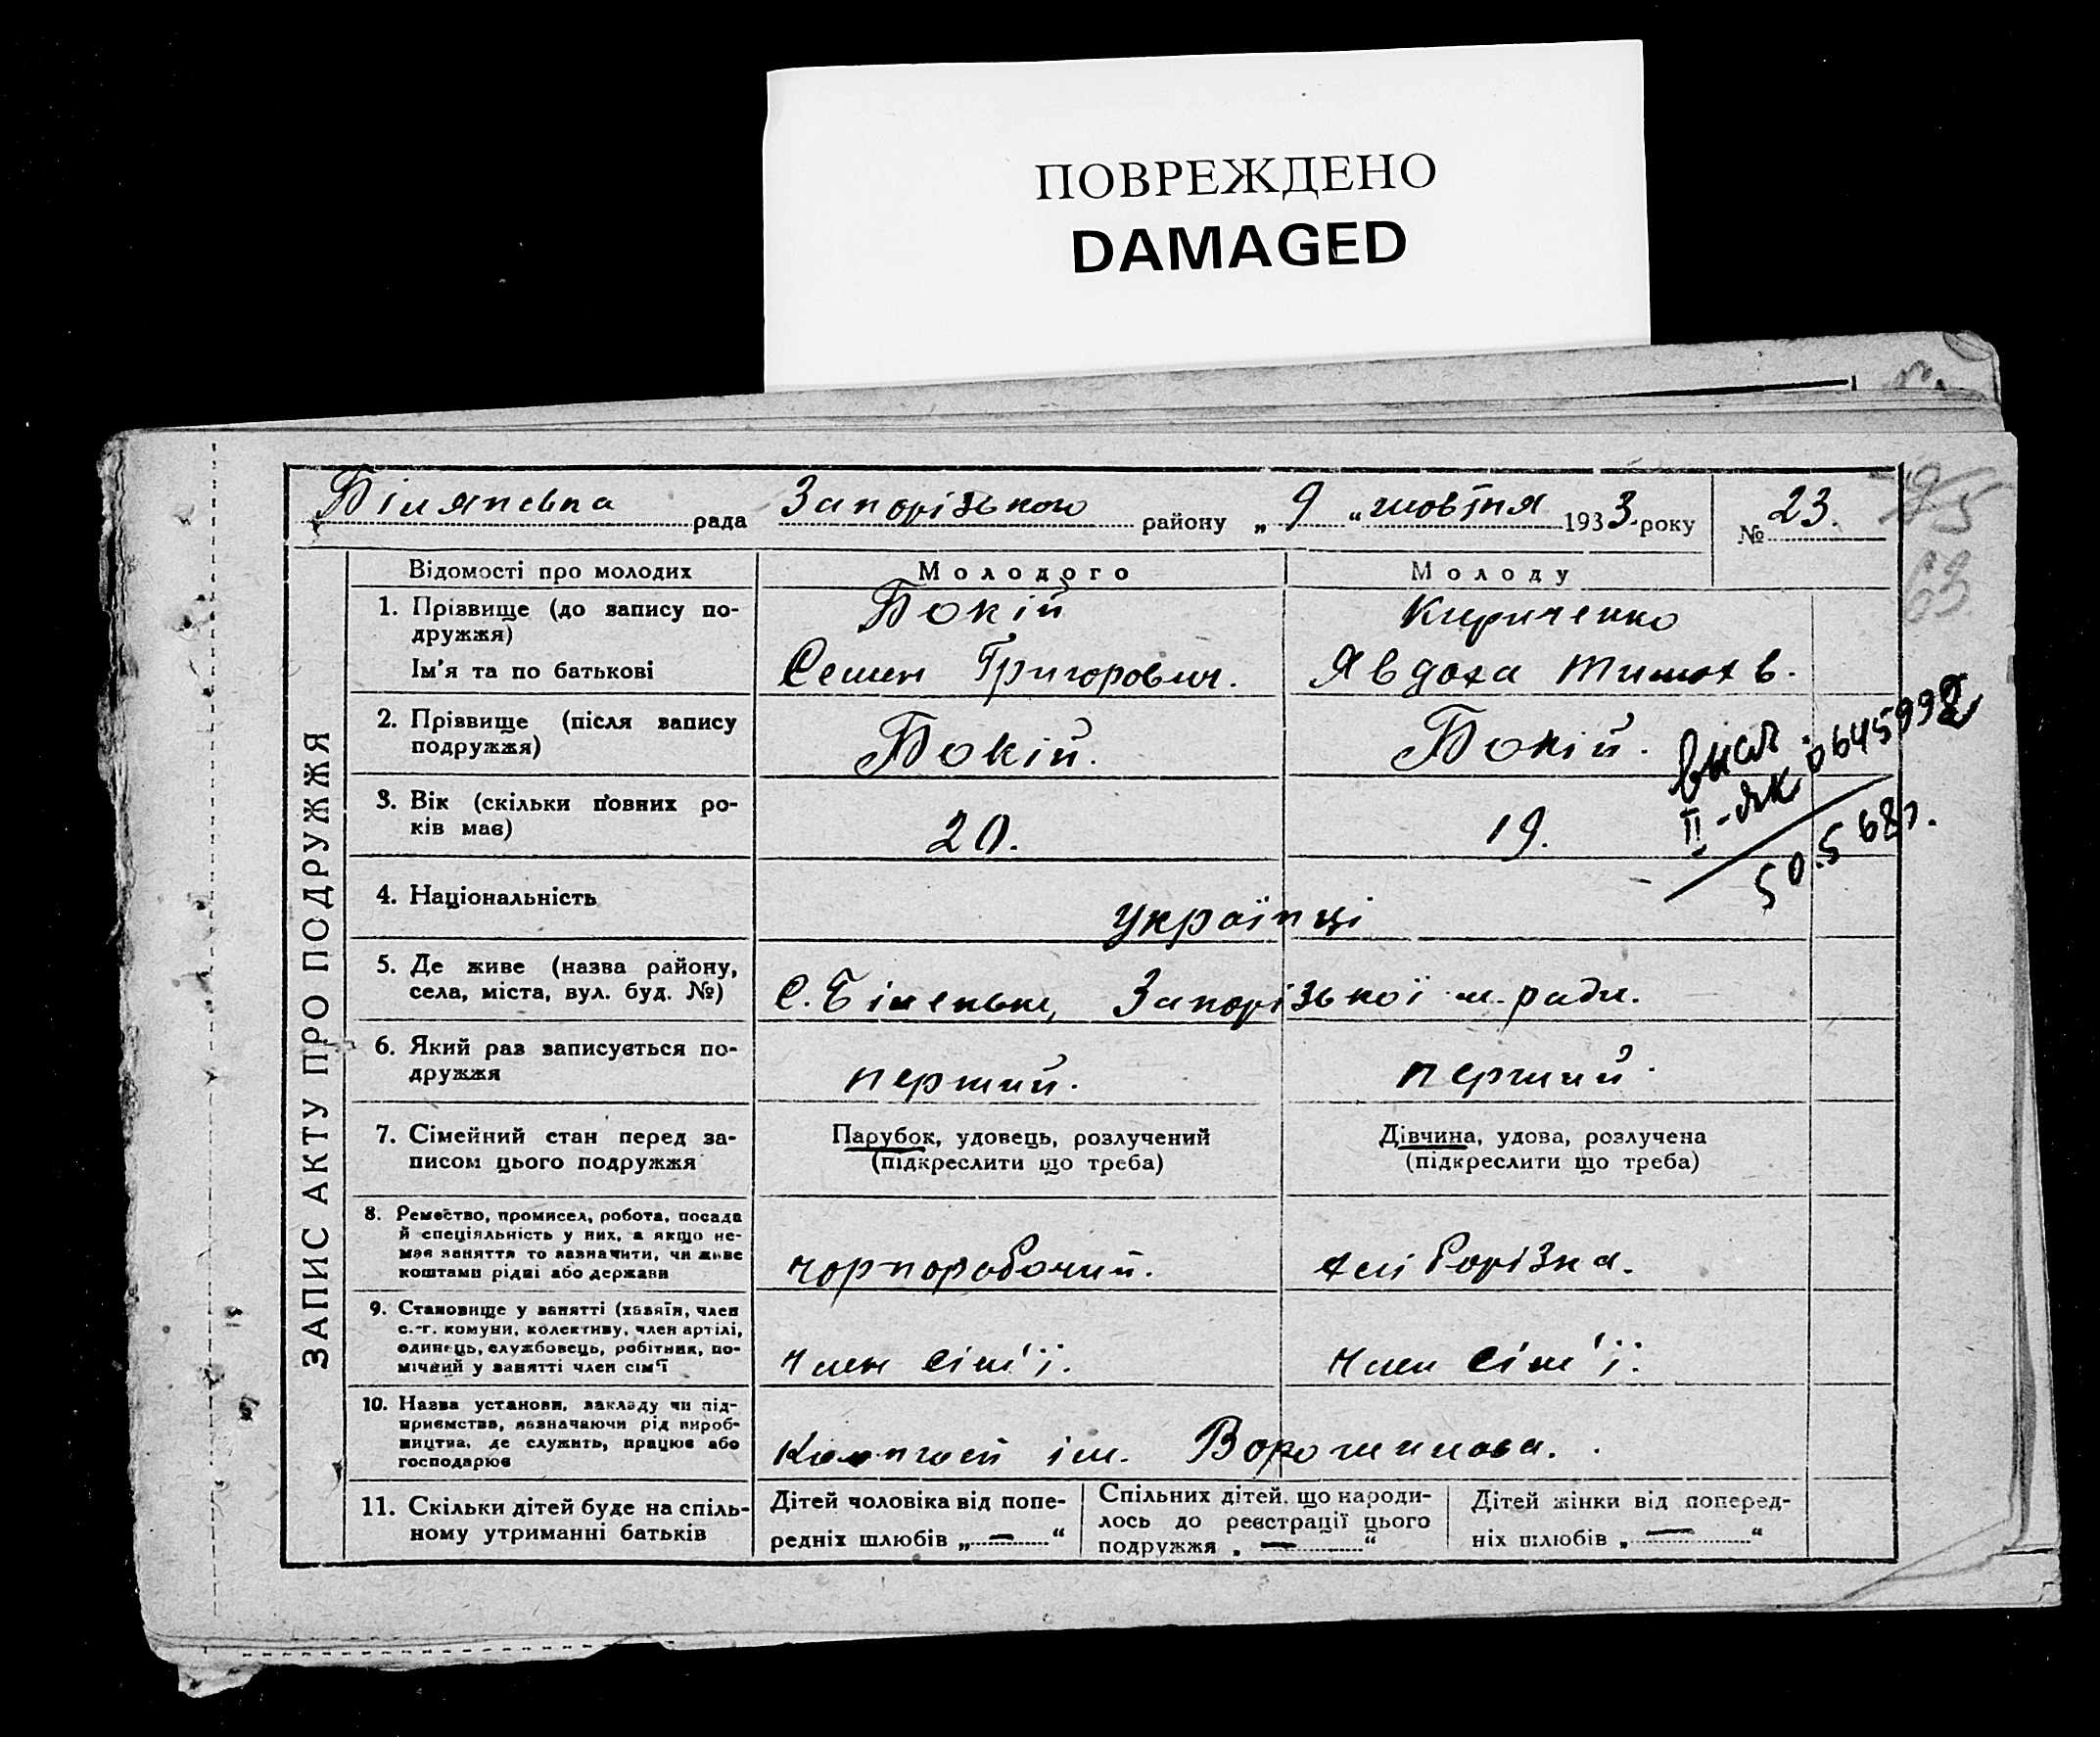 ПОВРЕЖДЕНО
DAMAGED
рада Запорізького району „ 9 “ жовтня 1933 року № 23.
ЗАПИС АКТУ ПРО ПОДРУЖЖЯ
Відомості про молодих Молодого Молоду
1. Прізвище (до запису по-
дружжя) Бокій Кириченко
Ім'я та по батькові Семен Григорович. Явдоха Тимохв.
2. Прізвище (після запису
подружжя) Бокій. Бокій.
3. Вік (скільки повних ро-
ків має) 20. 19.
4. Національність українці
5. Де живе (назва району,
села, міста, вул. буд. №) с. Біленьке, Запорізької м. ради.
6. Який раз записується по-
дружжя перший. перший.
7. Сімейний стан перед за-
писом цього подружжя
Парубок, удовець, розлучений
(підкреслити що треба)
Дівчина, удова, розлучена
(підкреслити що треба)
8. Ремество, промисел, робота, посада
й спеціяльність у них, а якщо не-
має заняття то зазначити, чи живе
коштами рідні або держави
чорноробочий. хліборізка.
9. Становище у занятті (хазяїн, член
с.-г. комуни, колективу, член артілі,
одинець, службовець, робітник, по-
мічний у занятті член сім'ї
член сім'ї. член сім'ї.
10. Назва установи, закладу чи під-
приємства, зазначаючи рід вироб-
ництва, де служить, працює або
господарює
ім. Ворошилова.
11. Скільки дітей буде на спіль-
ному утриманні батьків
Дітей чоловіка від попе-
редніх шлюбів „ — “
Спільних дітей, що народи-
лось до реєстрації цього
подружжя „ — “
Дітей жінки від поперед-
ніх шлюбів „ — “
II-ЯК
63